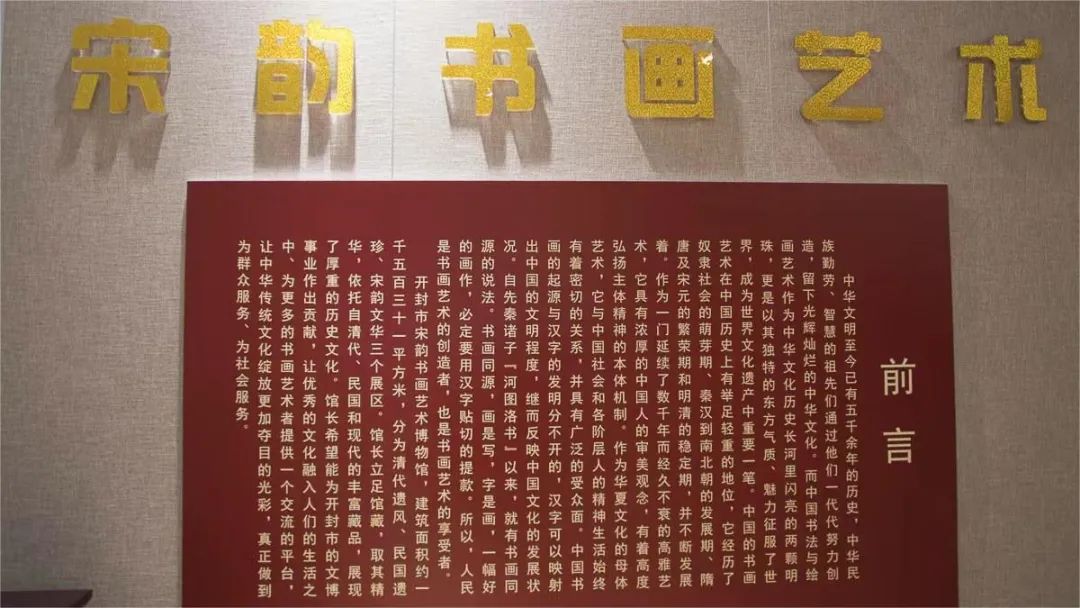 宋韵书画艺术
前言
中华文明至今已有五千余年的历史，中华民
族勤劳、智慧的祖先们通过他们一代代努力创
造，留下光辉灿烂的中华文化。而中国书法与绘
画艺术作为中华文化历史长河里闪亮的两颗明
珠，更是以其独特的东方气质、魅力征服了世
界，成为世界文化遗产中重要一笔。中国的书画
艺术在中国历史上有举足轻重的地位，它经历了
奴隶社会的萌芽期、秦汉到南北朝的发展期、隋
唐及宋元的繁荣期和明清的稳定期，并不断发展
着。作为一门延续了数千年而经久不衰的高雅艺
术，它具有浓厚的中国人的审美观念，有着高度
弘扬主体精神的本体机制。作为华夏文化的母体
艺术，它与中国社会和各阶层人的精神生活始终
有着密切的关系，并具有广泛的受众面。中国书
画的起源与汉字的发明分不开的，汉字可以映射
出中国的文明程度，继而反映中国文化的发展状
况。自先秦诸子『河图洛书』以来，就有书画同
源的说法。书画同源，画是写，字是画，一幅好
的画作，必定要用汉字贴切的提款。所以，人民
是书画艺术的创造者，也是书画艺术的享受者。
开封市宋韵书画艺术博物馆，建筑面积约一
千五百三十一平方米，分为清代遗风、民国遗
珍、宋韵文华三个展区。馆长立足馆藏，取其精
华，依托自清代、民国和现代的丰富藏品，展现
了厚重的历史文化。馆长希望能为开封市的文博
事业作出贡献，让优秀的文化融入人们的生活之
中、为更多的书画艺术者提供一个交流的平台，
让中华传统文化绽放更加夺目的光彩，真正做到
为群众服务、为社会服务。